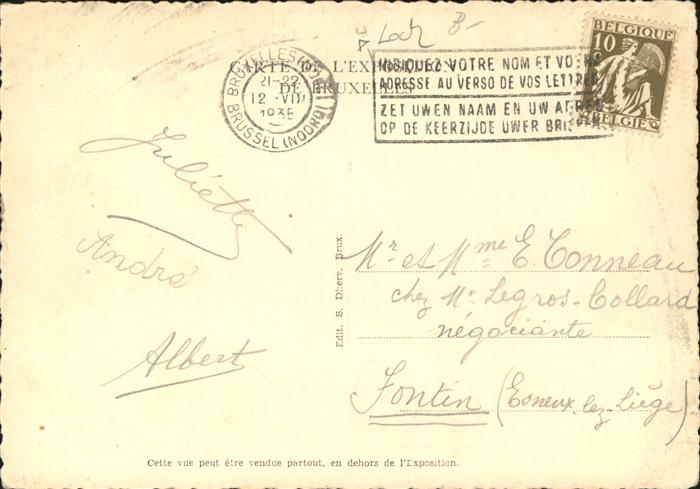 Loch 3-
BELGIQUE
10
BELGIË
CARTE DE L'EXPOSITION
DE BRUXELLES
BRUXELLES (NORD)
21-22
12 VII
1935
BRUSSEL (NOORD)
INDIQUEZ VOTRE NOM ET VOTRE
ADRESSE AU VERSO DE VOS LETTRES
ZET UWEN NAAM EN UW ADRES
OP DE KEERZIJDE UWER BRIEVEN
Juliette
André
Albert
Edit. S. Dherv. Brux.
Mr et Mme E. Tonneau
chez Mr Legros-Collard
négociante
Fontin (Esneux-lez-Liège)
Cette vue peut être vendue partout, en dehors de l'Exposition.